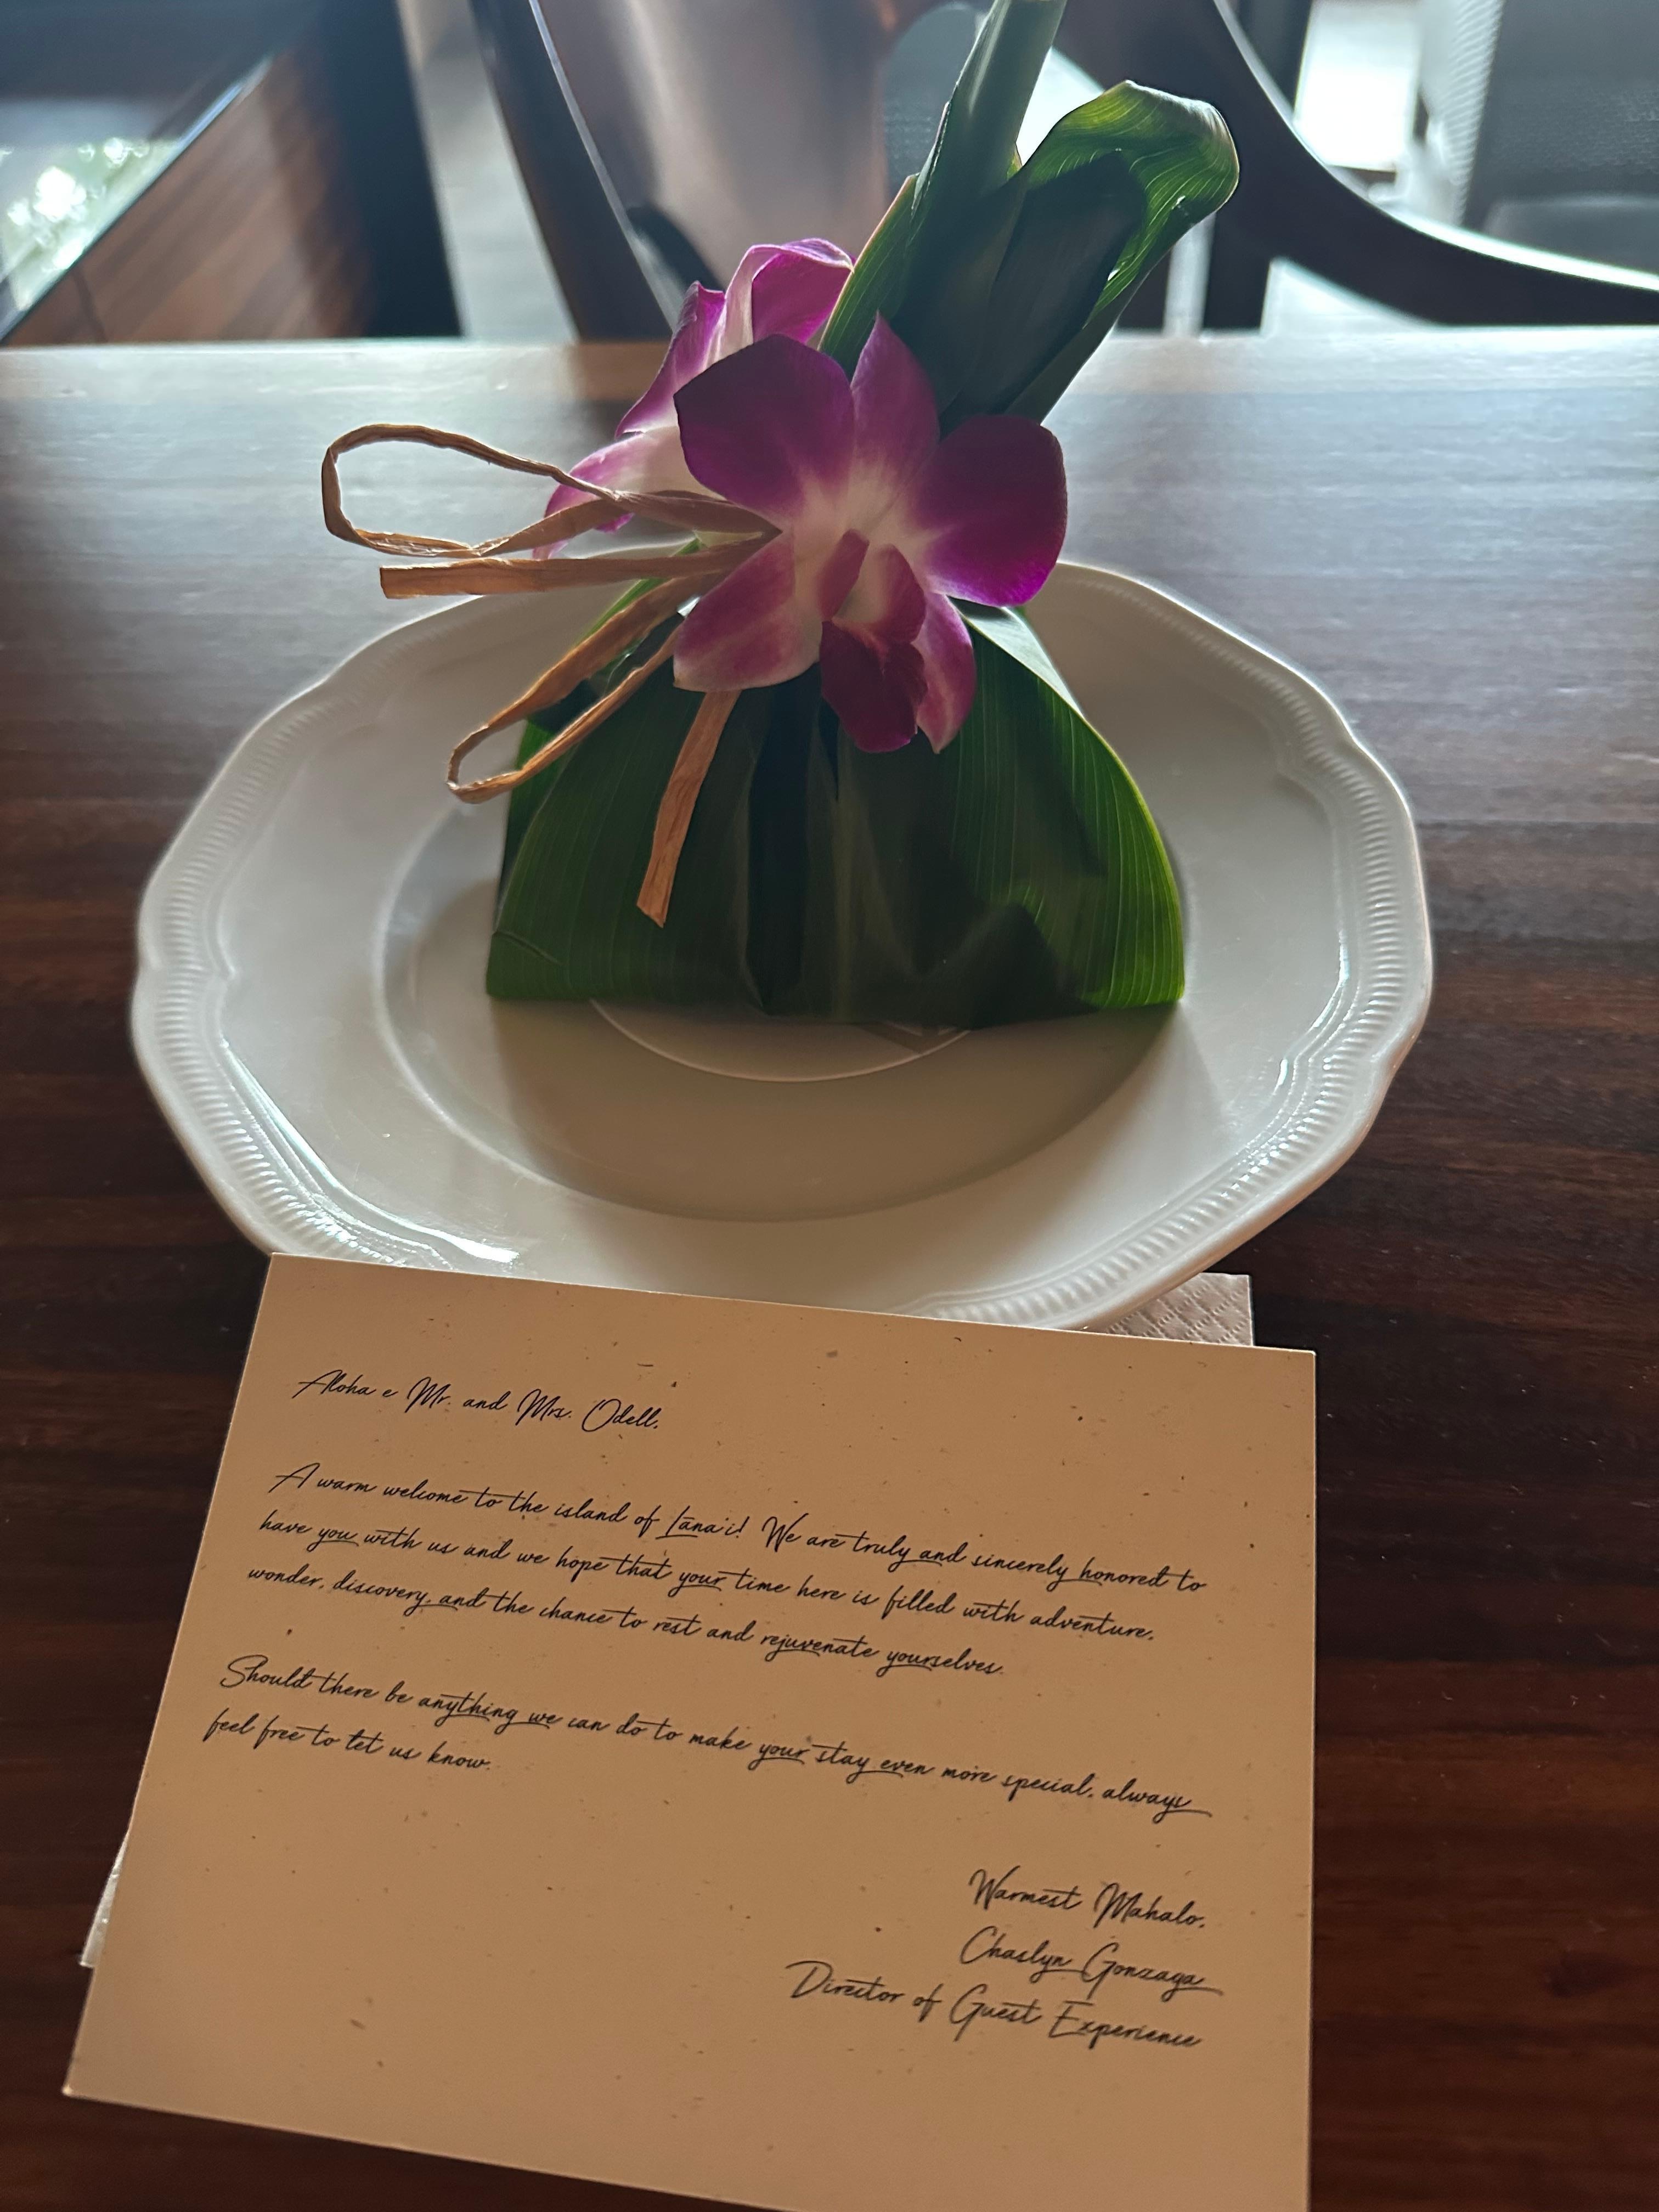 Aloha e Mr. and Mrs. Odell,
A warm welcome to the island of Lāna'i! We are truly and sincerely honored to
have you with us and we hope that your time here is filled with adventure,
wonder, discovery, and the chance to rest and rejuvenate yourselves.
Should there be anything we can do to make your stay even more special, always
feel free to let us know.
Warmest Mahalo,
Chaslyn Gonzaga
Director of Guest Experience